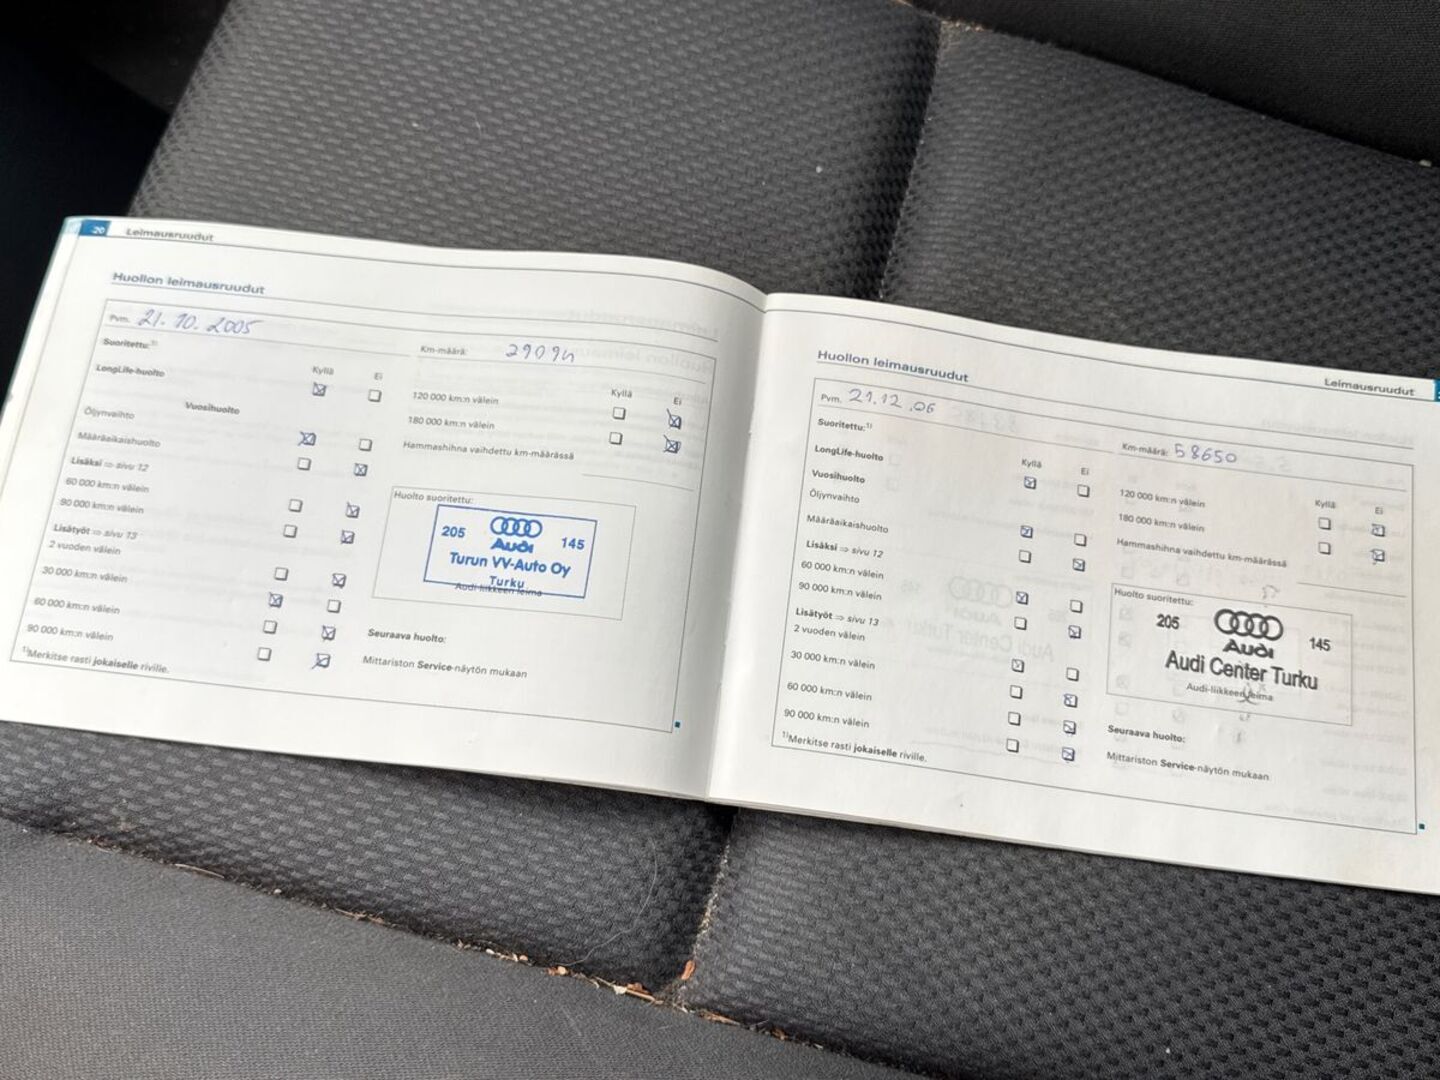 20 Leimausruudut
Huollon leimausruudut
Pvm. 21.10.2005
Km-määrä:
Suoritettu:¹⁾
Kyllä Ei
LongLife-huolto
Vuosihuolto
Öljynvaihto
Määräaikaishuolto
Lisäksi ⇒ sivu 12
60 000 km:n välein
90 000 km:n välein
Lisätyöt ⇒ sivu 13
2 vuoden välein
30 000 km:n välein
60 000 km:n välein
90 000 km:n välein
¹⁾Merkitse rasti jokaiselle riville.
Kyllä Ei
120 000 km:n välein
180 000 km:n välein
Hammashihna vaihdettu km-määrässä
Huolto suoritettu:
205 Audi 145
Turun VV-Auto Oy
Turku
Audi-liikkeen leima
Seuraava huolto:
Mittariston Service-näytön mukaan
Leimausruudut
Huollon leimausruudut
Pvm. 21.12.06
Km-määrä: 58650
Suoritettu:¹⁾
Kyllä Ei
LongLife-huolto
Vuosihuolto
Öljynvaihto
Määräaikaishuolto
Lisäksi ⇒ sivu 12
60 000 km:n välein
90 000 km:n välein
Lisätyöt ⇒ sivu 13
2 vuoden välein
30 000 km:n välein
60 000 km:n välein
90 000 km:n välein
¹⁾Merkitse rasti jokaiselle riville.
Kyllä Ei
120 000 km:n välein
180 000 km:n välein
Hammashihna vaihdettu km-määrässä
Huolto suoritettu:
205 Audi 145
Audi Center Turku
Audi-liikkeen leima
Seuraava huolto:
Mittariston Service-näytön mukaan